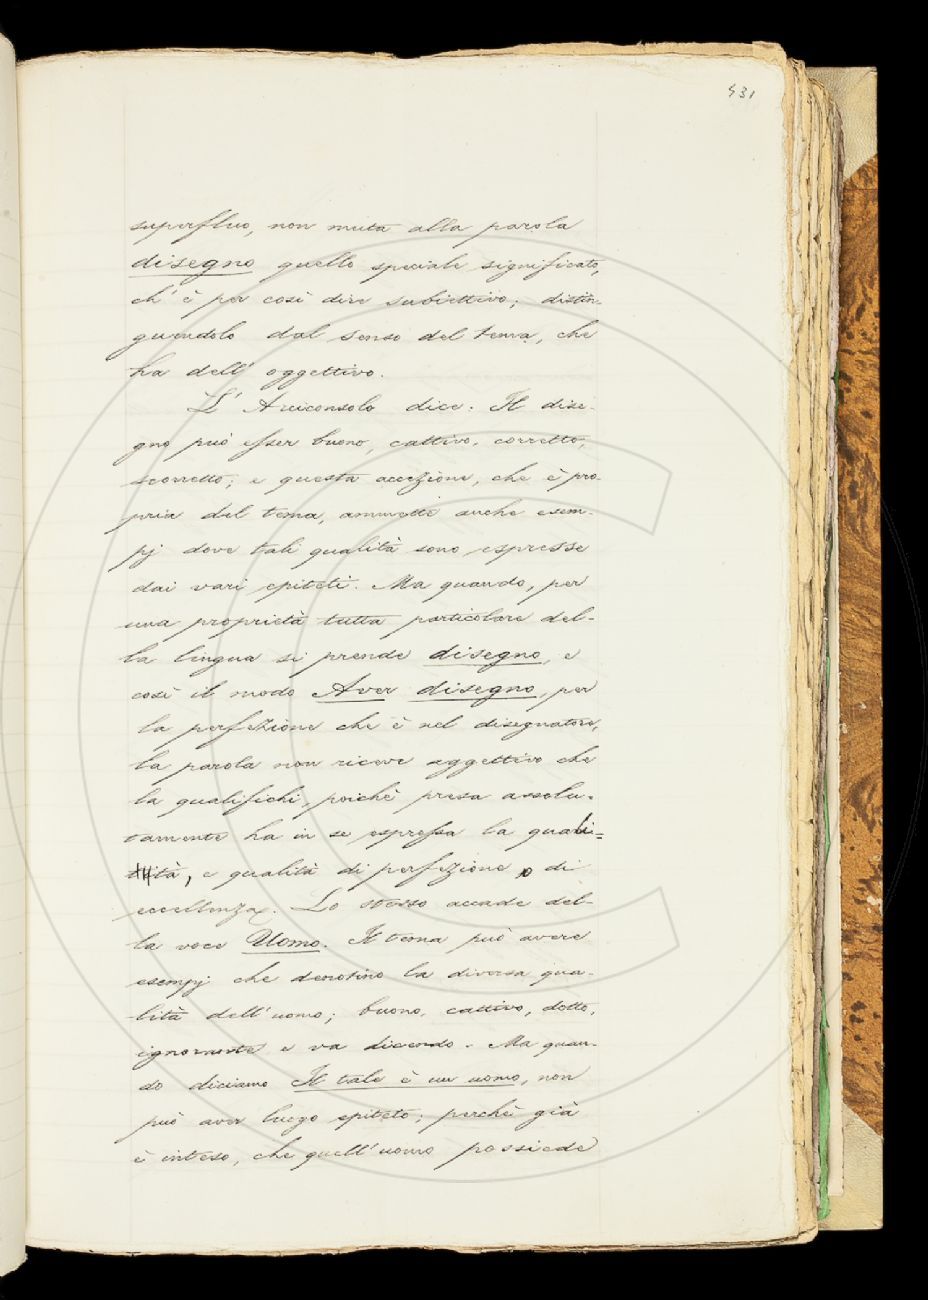 431
superfluo, non muta alla parola
disegno quello speciale significato,
ch' è per così dire subiettivo; distin-
guendolo dal senso del tema, che
ha dell' oggettivo.
L' Arciconsolo dice. Il dise-
gno può esser buono, cattivo, corretto,
scorretto; e questa accezione, che è pro-
pria del tema, ammette anche esem-
pj dove tali qualità sono espresse
dai vari epiteti. Ma quando, per
una proprietà tutta particolare del-
la lingua si prende disegno, e
così il modo Aver disegno, per
la perfezione che è nel disegnatore,
la parola non riceve aggettivo che
la qualifichi, poichè presa assolu-
tamente ha in se espressa la quali=
tà, e qualità di perfezione o di
eccellenza. Lo stesso accade del-
la voce Uomo. Il tema può avere
esempj che denotino la diversa qua-
lità dell' uomo; buono, cattivo, dotto,
ignorante e va dicendo. Ma quan-
do diciamo Il tale è un uomo, non
può aver luogo epiteto; perchè già
è inteso, che quell' uomo possiede